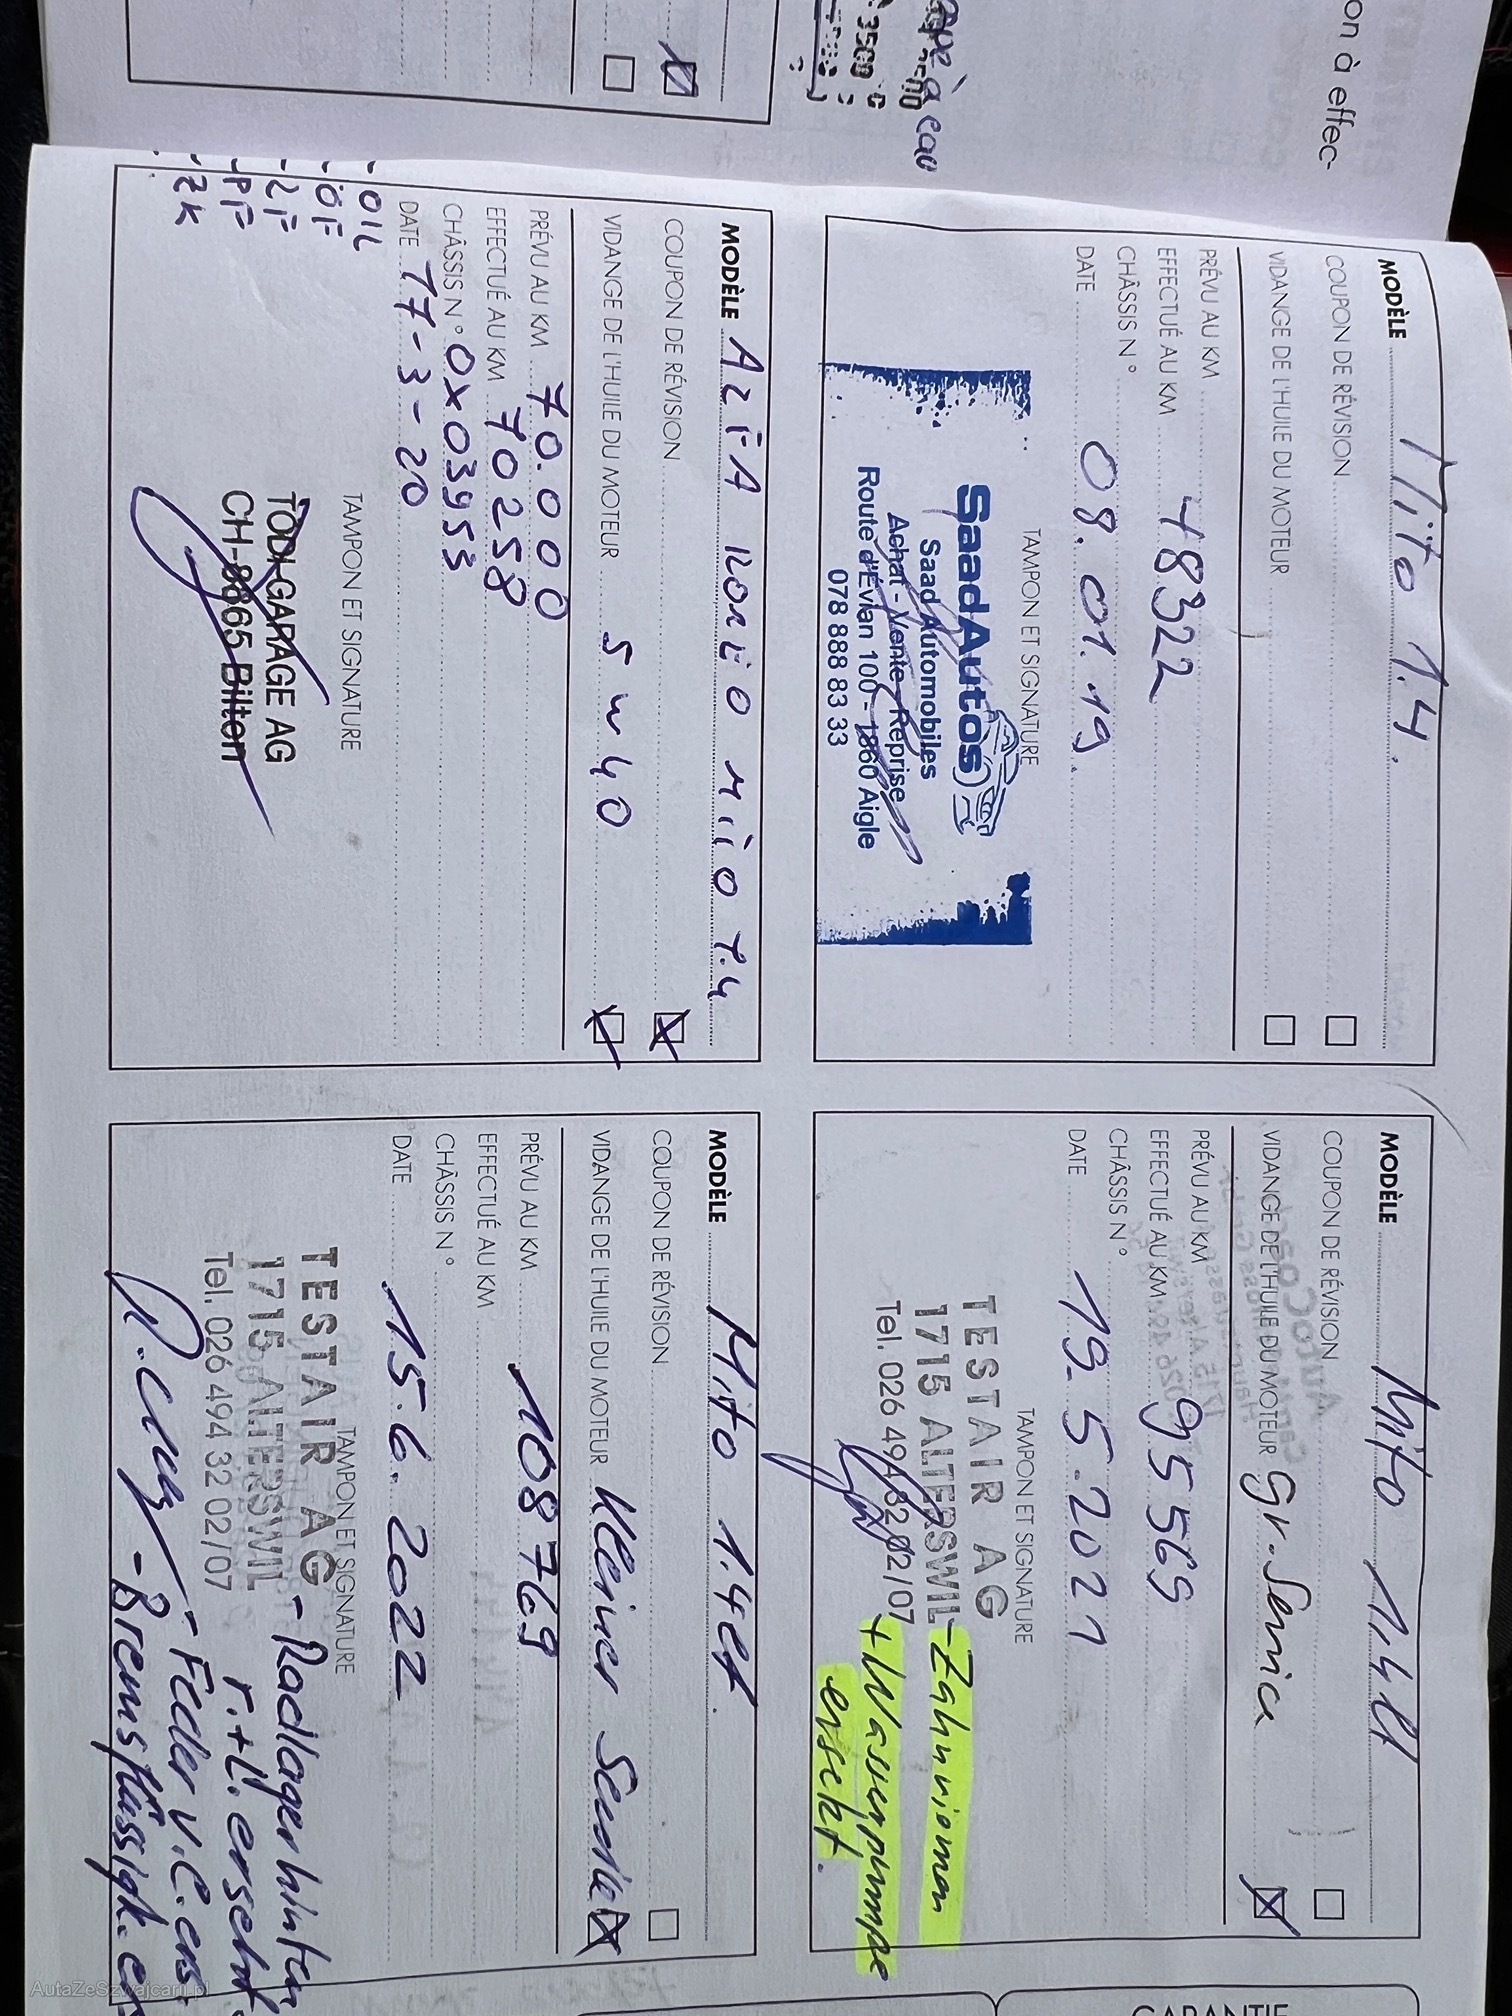 on à effec-
MODÈLE Mito 1.4.
COUPON DE RÉVISION
VIDANGE DE L'HUILE DU MOTEUR
PRÉVU AU KM
EFFECTUÉ AU KM 48322
CHÂSSIS N°
DATE 08.01.19.
TAMPON ET SIGNATURE
SaadAutos
Saad Automobiles
Achat - Vente - Reprise
Route d'Évian 100 - 1860 Aigle
078 888 83 33
MODÈLE Mito 1,4lt
COUPON DE RÉVISION
VIDANGE DE L'HUILE DU MOTEUR Gr. Service
PRÉVU AU KM
EFFECTUÉ AU KM 95569
CHÂSSIS N°
DATE 19.5.2021
TAMPON ET SIGNATURE
TESTAIR AG
1715 ALTERSWIL
Tel. 026 494 32 02/07
- Zahnriemen
+ Wasserpumpe
ersetzt.
MODÈLE ALFA ROMEO MITO 1.4
COUPON DE RÉVISION
VIDANGE DE L'HUILE DU MOTEUR 5W40
PRÉVU AU KM 70.000
EFFECTUÉ AU KM 70258
CHÂSSIS N° 0X03953
DATE 17-3-20
- OIL
- ÖF
- LF
- PF
- ZK
TAMPON ET SIGNATURE
TODI-GARAGE AG
CH-8865 Bilten
MODÈLE Mito 1.4lt.
COUPON DE RÉVISION
VIDANGE DE L'HUILE DU MOTEUR Kleiner Service
PRÉVU AU KM 108769
EFFECTUÉ AU KM
CHÂSSIS N°
DATE 15.6.2022
TAMPON ET SIGNATURE
TESTAIR AG
1715 ALTERSWIL
Tel. 026 494 32 02/07
- Radlager hinten
r.+l. ersetzt.
- Feder v.l. ers.
- Bremsflüssigk.
GARANTIE
AutaZeSzwajcarii.pl